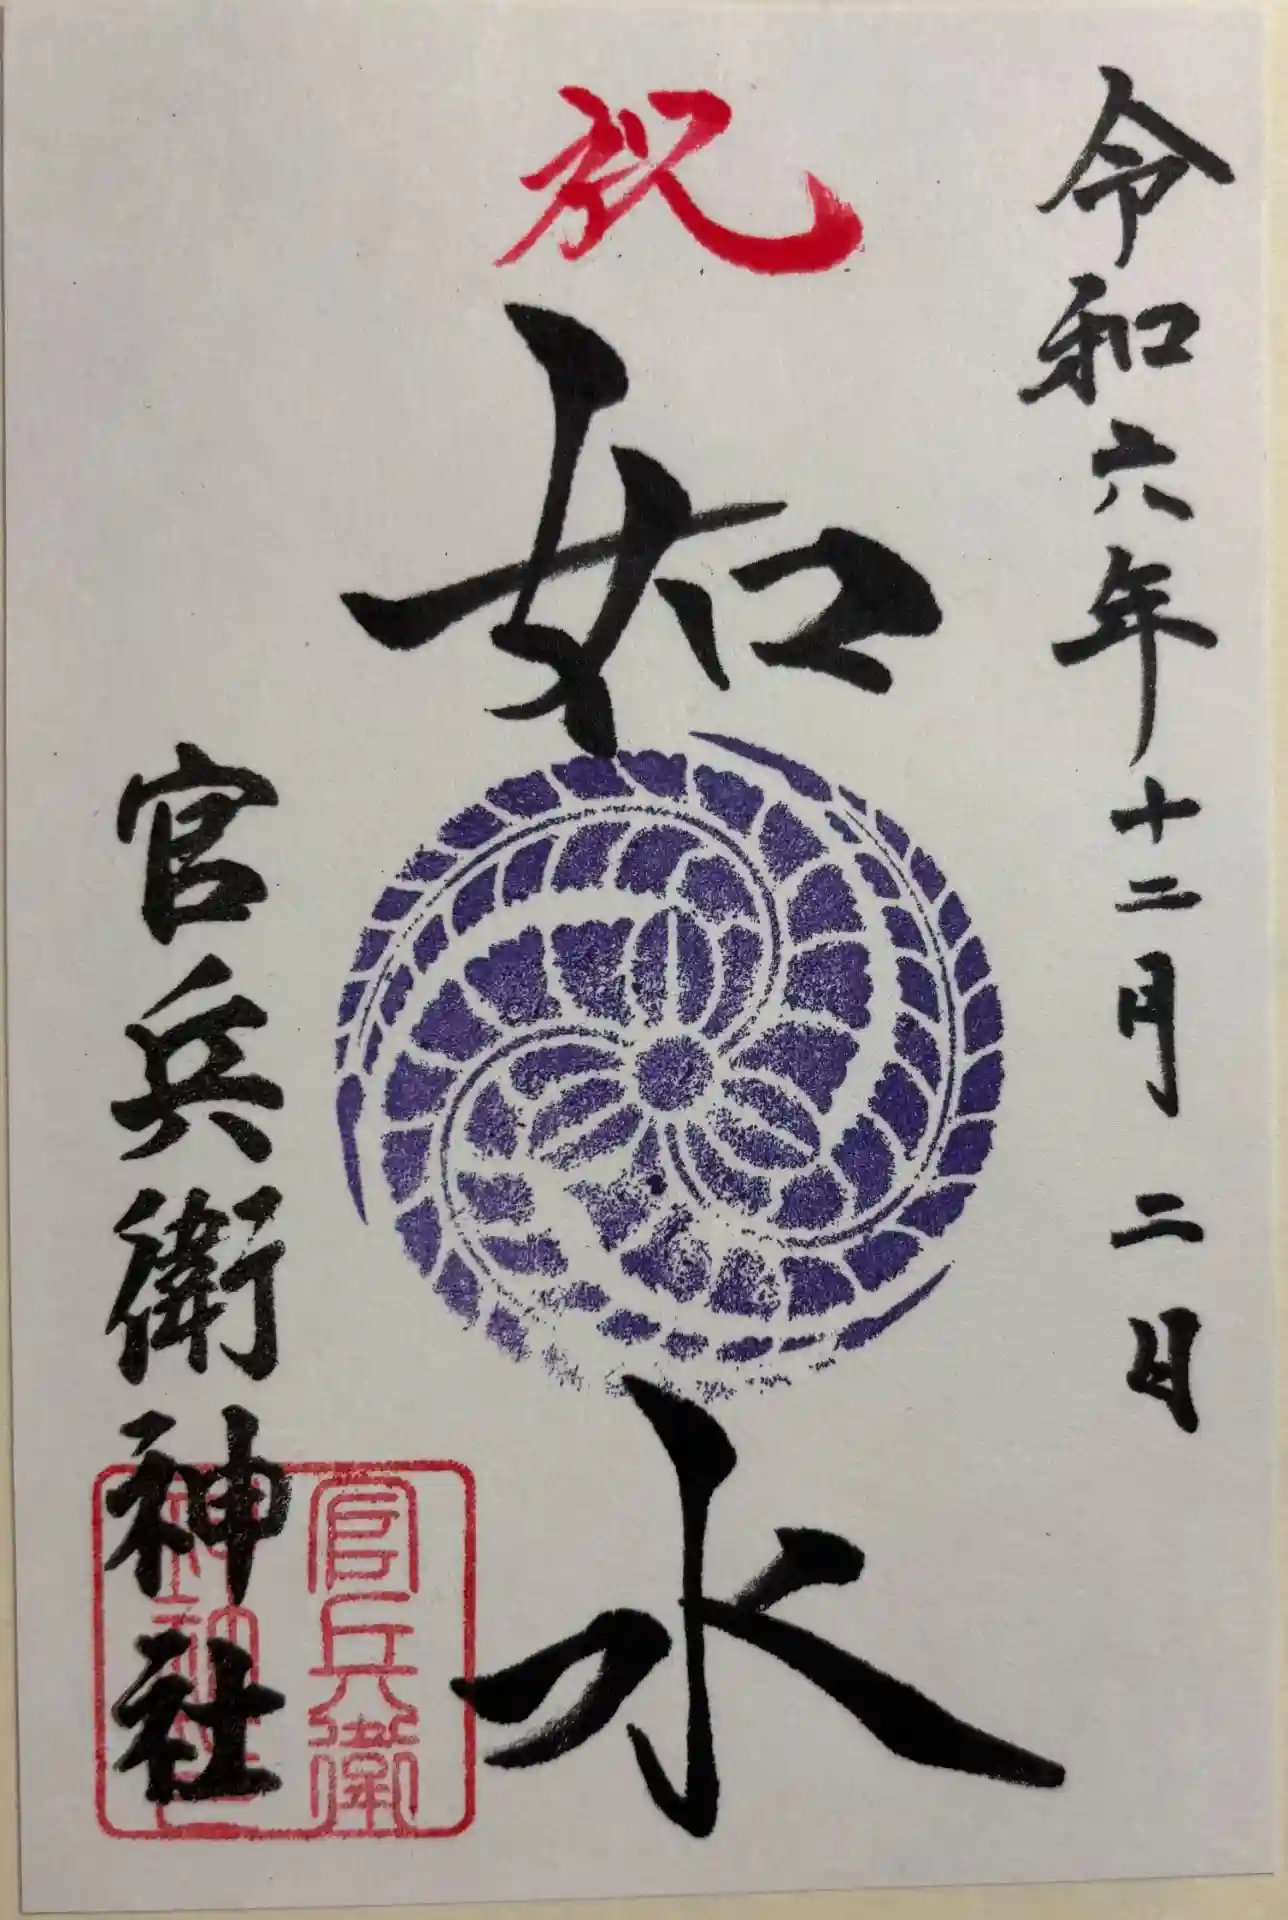 令和六年十二月二日
祝
如水
官兵衛神社
官兵衛